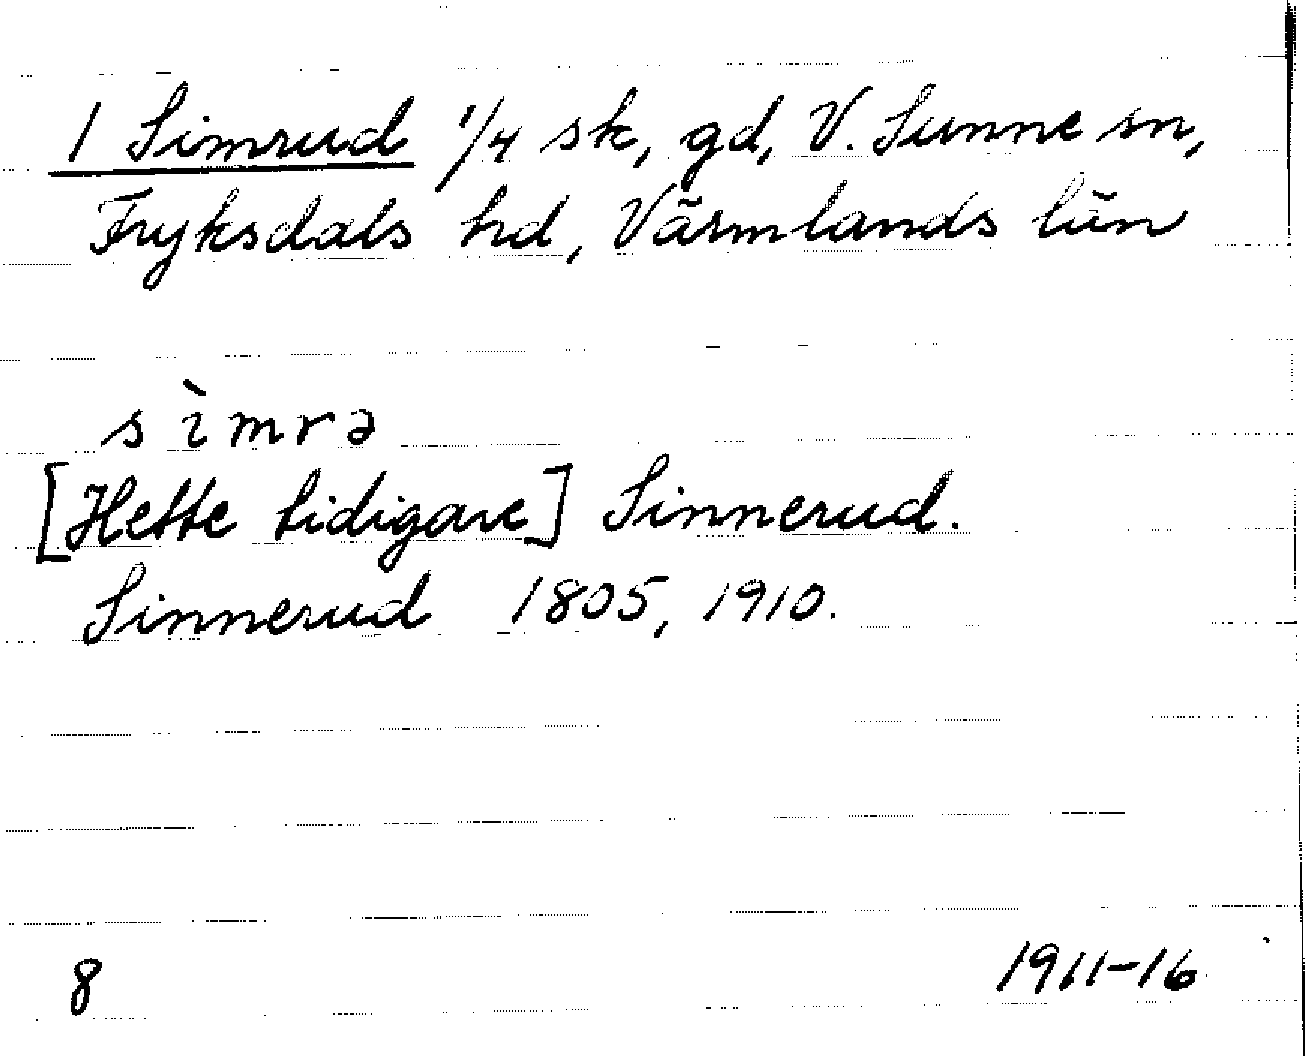 1 Simrud 1/4 sk, gd, V. Sunne sn,
Fryksdals hd, Värmlands län
sìmrə
[Hette tidigare] Sinnerud.
Sinnerud 1805, 1910.
8 1911-16